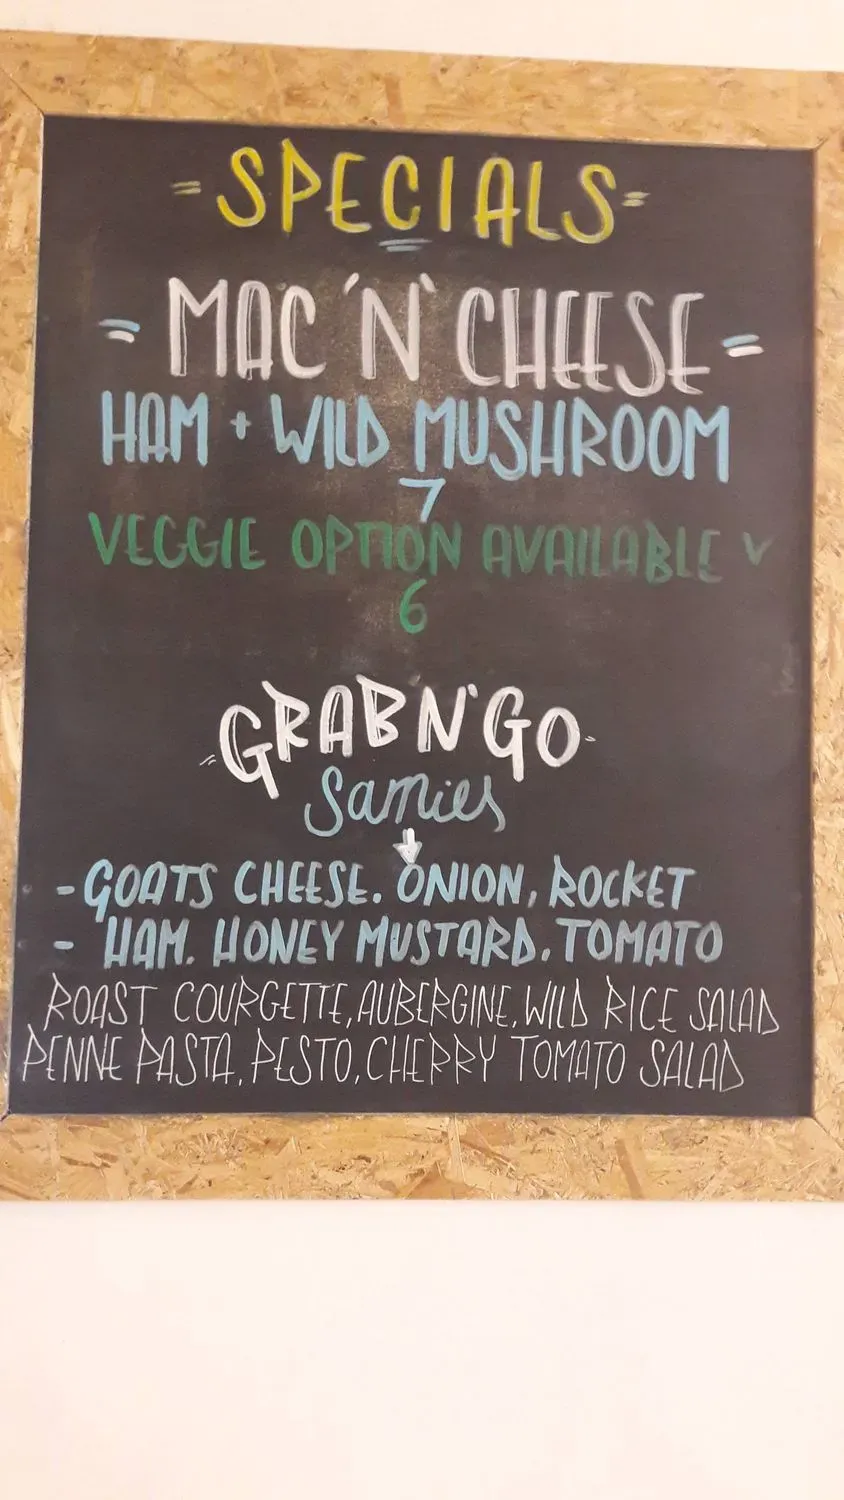 = SPECIALS =
= MAC 'N' CHEESE =
HAM + WILD MUSHROOM
7
VEGGIE OPTION AVAILABLE V
6
GRAB N' GO
Samies
- GOATS CHEESE. ONION, ROCKET
- HAM. HONEY MUSTARD. TOMATO
ROAST COURGETTE, AUBERGINE, WILD RICE SALAD
PENNE PASTA, PESTO, CHERRY TOMATO SALAD